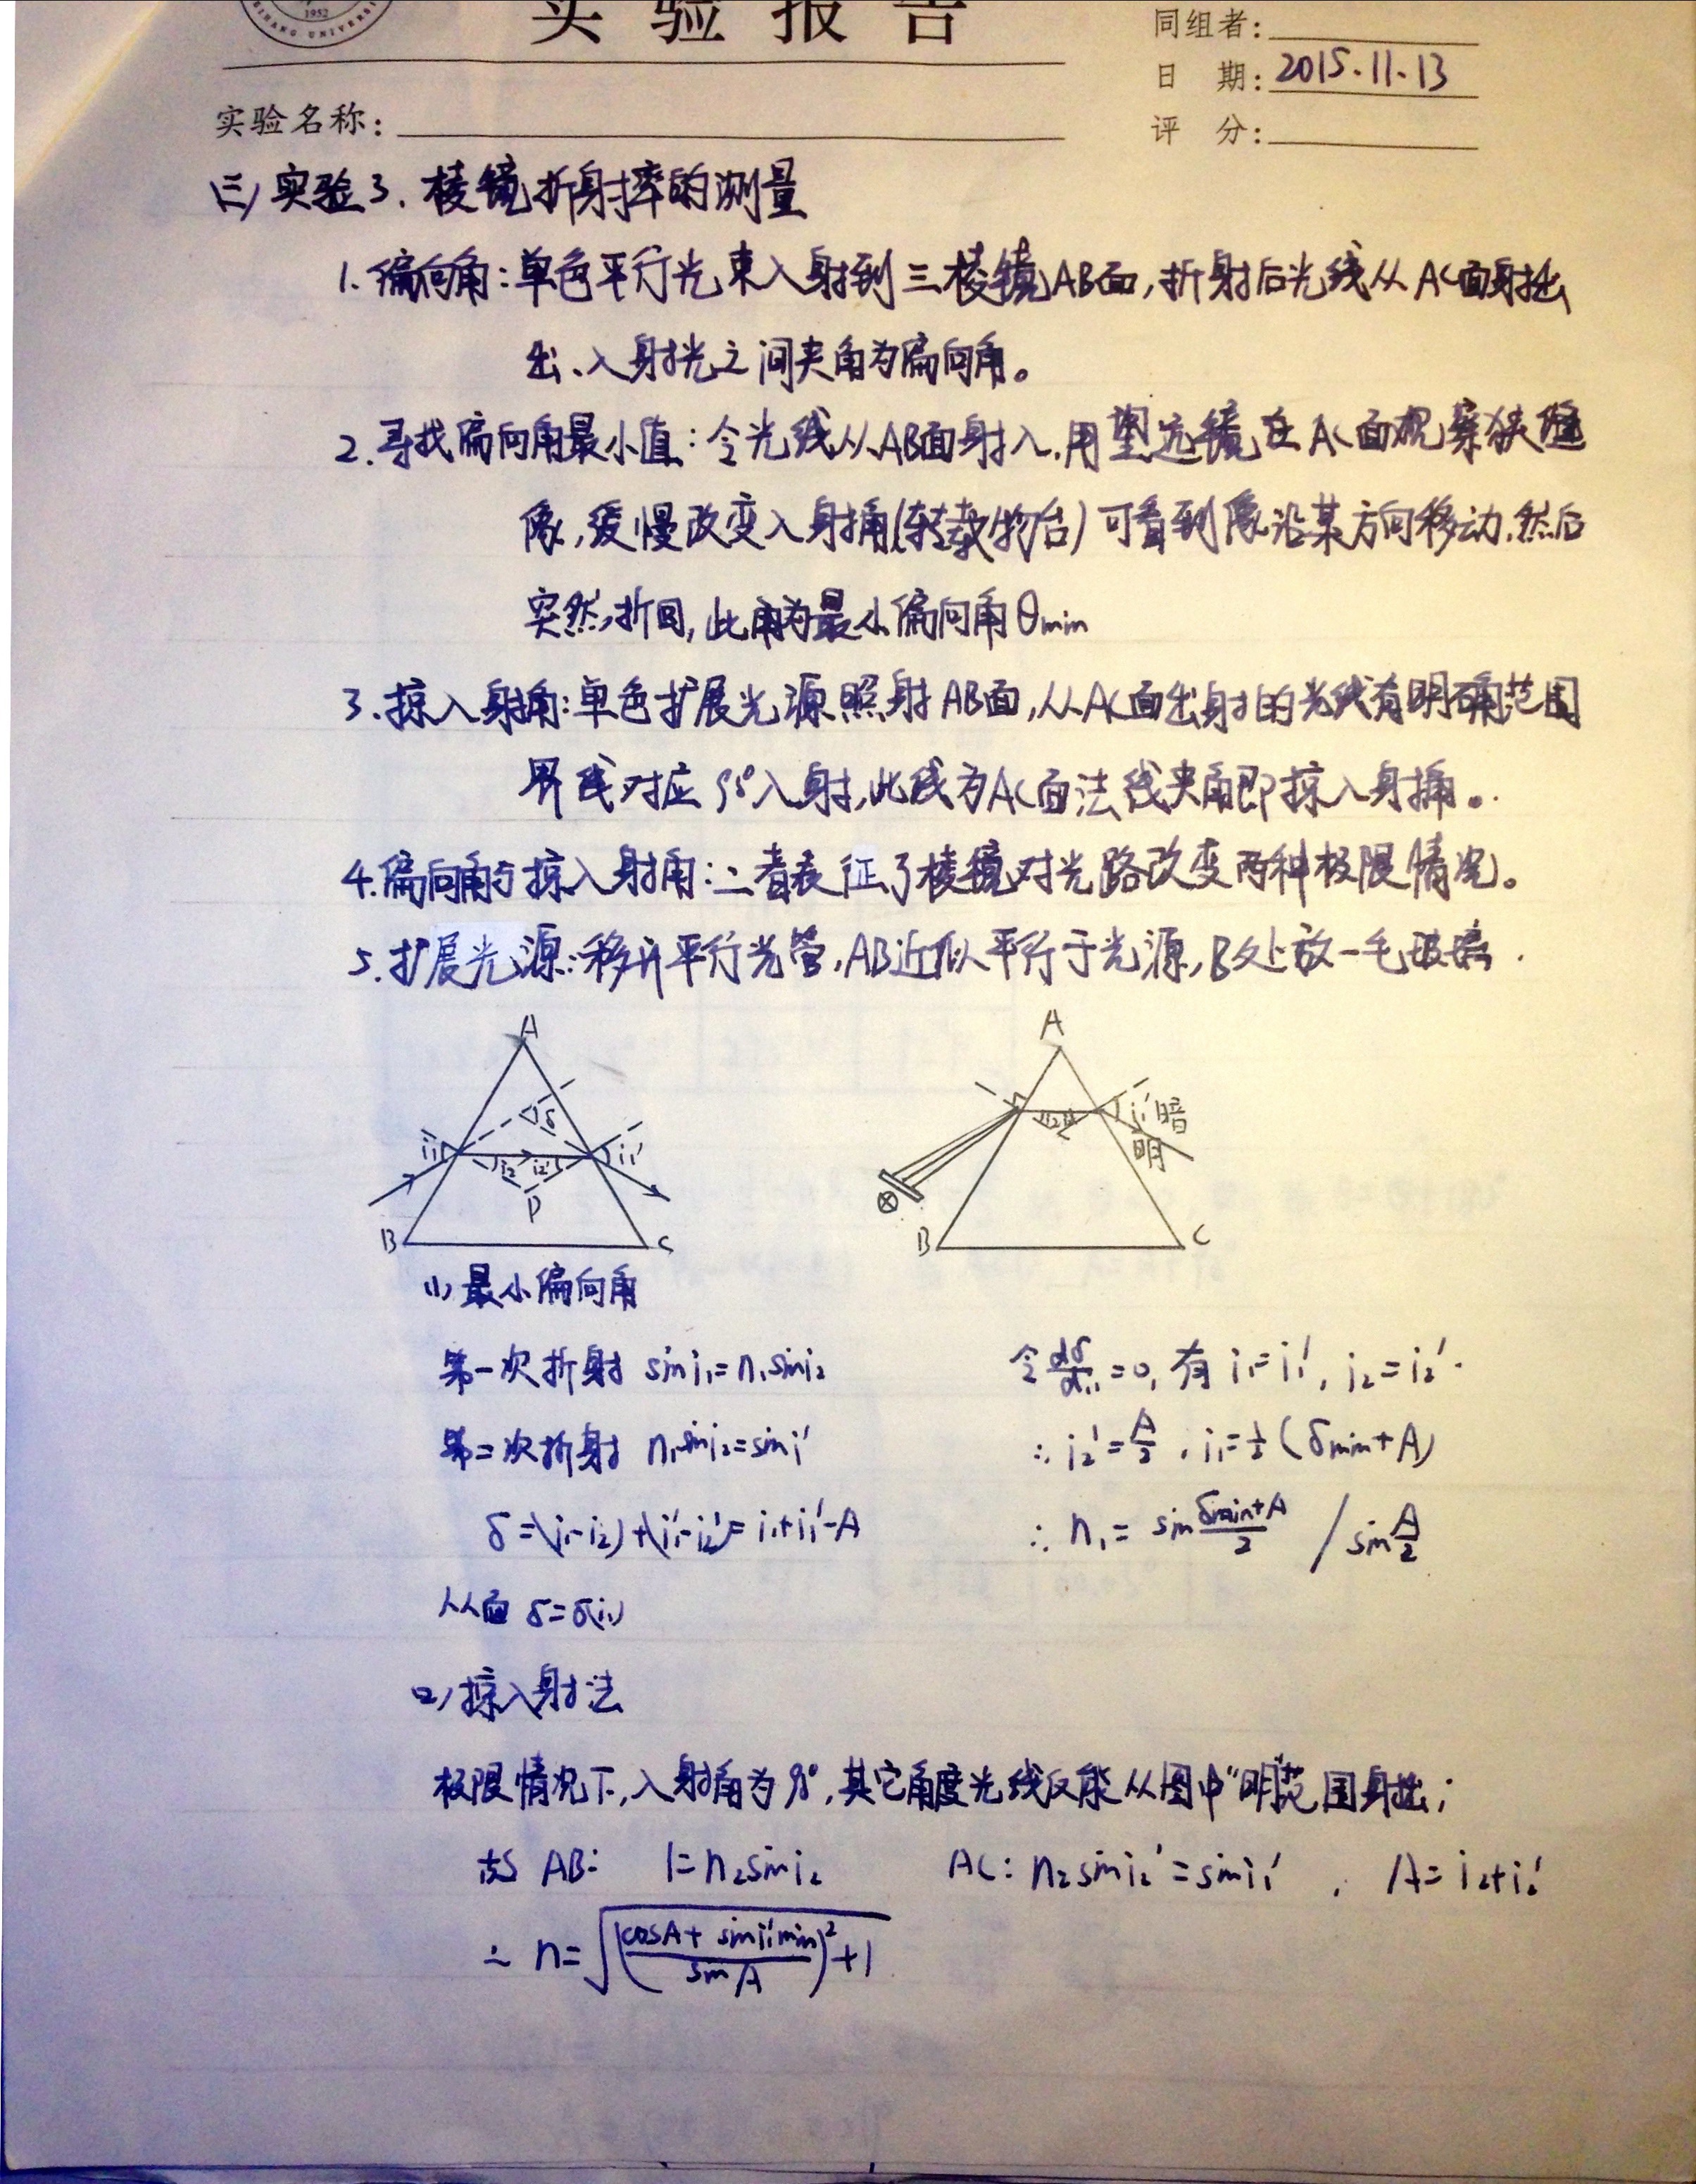 1952
HANG UNIVERSI
实验报告
同组者:
日 期: 2015.11.13
实验名称:
评 分:
(三) 实验3. 棱镜折射率的测量
1. 偏向角: 单色平行光束入射到三棱镜AB面, 折射后光线从AC面射出
出、入射光之间夹角为偏向角。
2. 寻找偏向角最小值: 令光线从AB面射入, 用望远镜在AC面观察狭缝
像, 缓慢改变入射角(转载物台) 可看到像沿某方向移动, 然后
突然折回, 此角为最小偏向角θmin
3. 掠入射角: 单色扩展光源照射AB面, 从AC面出射的光线有明确范围
界线对应90°入射, 此线为AC面法线夹角即掠入射角。
4. 偏向角与掠入射角: 二者表征了棱镜对光路改变两种极限情况。
5. 扩展光源: 移开平行光管, AB近似平行于光源, B处放一毛玻璃.
A
δ
i₁ i₂ i₂' i₁'
P
B C
A
i₁' 暗
明
B C
(1) 最小偏向角
第一次折射 sini₁=n₁sini₂
令dδ/di₁=0, 有 i₁=i₁', i₂=i₂'.
第二次折射 n₁sini₂=sini'
∴ i₂'=A/2, i₁=½(δmin+A)
δ=(i₁-i₂)+(i₁'-i₂')=i₁+i₁'-A
∴ n₁= sin (δmin+A)/2 / sin A/2
从而 δ=δ(i₁)
(2) 掠入射法
极限情况下, 入射角为90°, 其它角度光线仅能从图中"明"范围射出;
故 AB: 1=n₂sini₂ AC: n₂sini₂'=sini₁', A=i₂+i₂'
∴ n=√(((cosA+sini₁'min)/sinA)²+1)